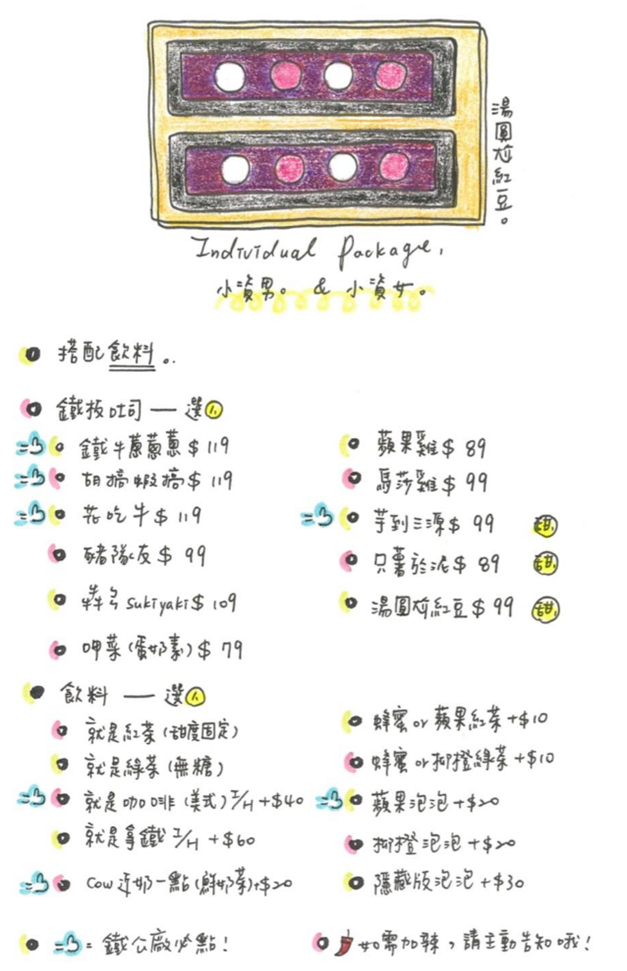 湯圓尬紅豆。
Individual Package,
小資男。 & 小資女。
搭配飲料。
鐵板吐司 — 選1
鐵牛蔥蔥蔥 $ 119
胡搞蝦搞 $ 119
花吃牛 $ 119
豬隊友 $ 99
sukiyaki $ 109
呷菜(蛋奶素) $ 79
蘋果雞 $ 89
馬莎雞 $ 99
芋到三源 $ 99 甜
只薯於泥 $ 89 甜
湯圓尬紅豆 $ 99 甜
飲料 — 選1
就是紅茶(甜度固定)
就是綠茶(無糖)
就是咖啡(美式) I/H +$40
就是拿鐵 I/H +$60
Cow 奶一點(鮮奶茶)+$20
蜂蜜 or 蘋果紅茶 +$10
蜂蜜 or 柳橙綠茶 +$10
蘋果泡泡 +$20
柳橙泡泡 +$20
隱藏版泡泡 +$30
= 鐵公廠必點!
如需加辣,請主動告知哦!